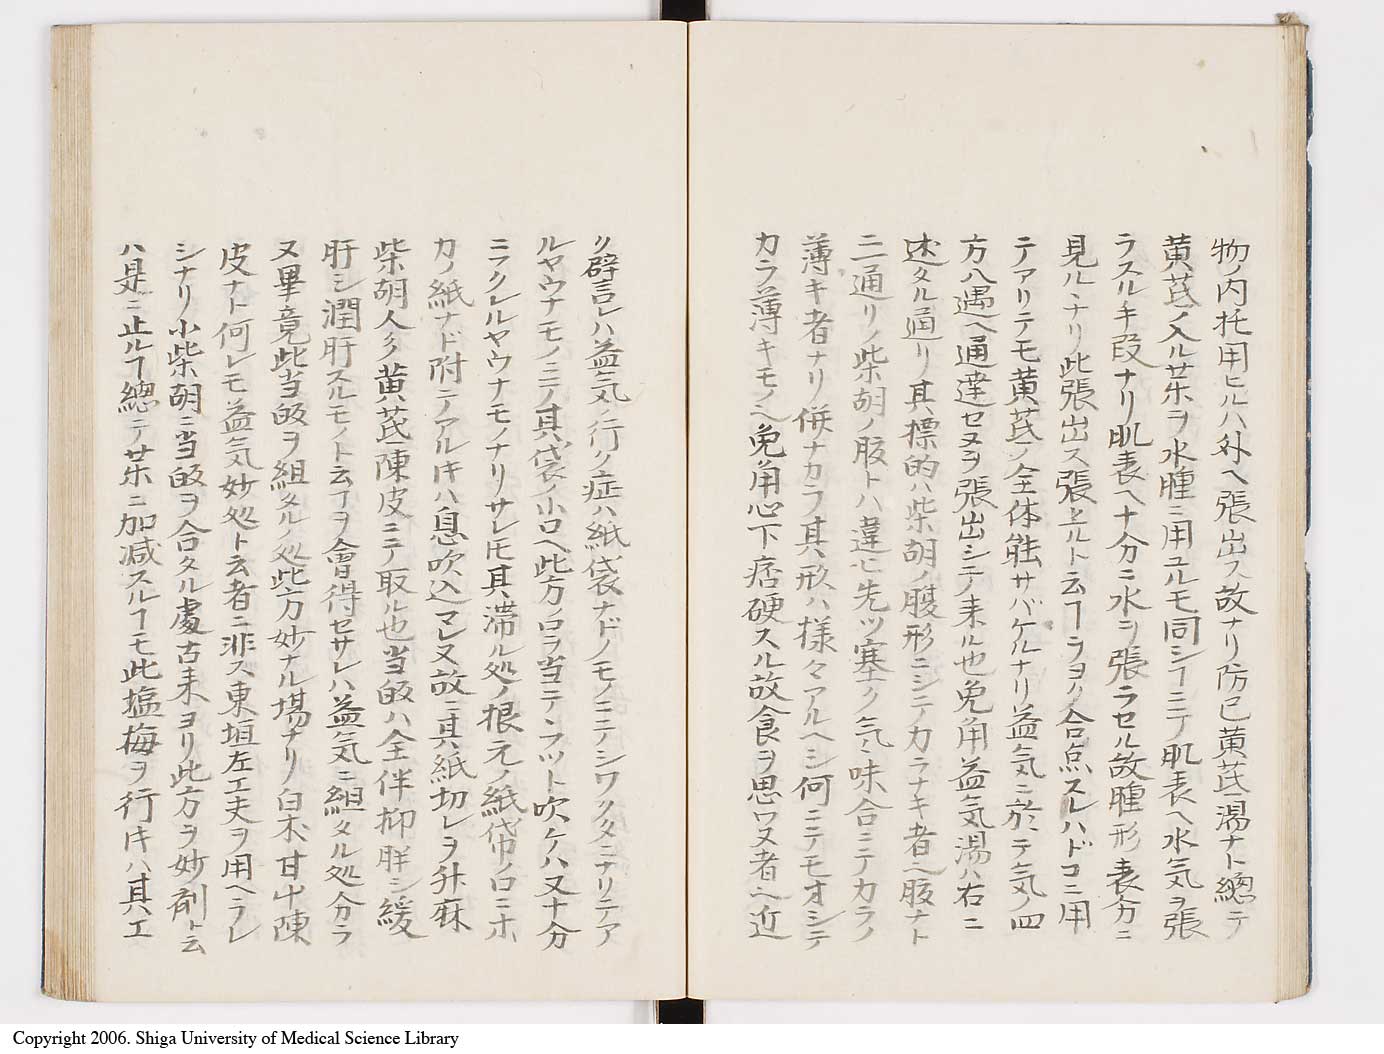 物ノ内托用ヒルハ外ヘ張出ス故ナリ防已黄芪湯ナト總テ
黄芪ノ入ル茱ヲ水腫ニ用ユルモ同シーニテ肌表ヘ水気ヲ張
ラスル手段ナリ肌表ヘ十分ニ水ヲ張ラセル故腫形表分ニ
見ルヽナリ此張出ス張上ルト云フヿラヨク合点スレハドコニ用
テアリテモ黄芪ノ全体能サバケルナリ益気ニ於テ気ノ四
方八遇ヘ通達セヌヲ張出シニテ来ル也免角益気湯ハ右ニ
述タル通リ其標的ハ柴胡ノ腹形ニシテカラナキ者ヘ腹ナト
二通リノ柴胡ノ腹トハ違ヒ先ツ塞ク気ヽ味合ニテカラノ
薄キ者ナリ併ナカラ其形ハ様々アルヘシ何ニテモオシテ
カラ薄キモノヘ免角心下痞硬スル故食ヲ思ワヌ者ヘ近
ク辟言レハ益気ノ行ク症ハ紙袋ナドノモノニテシワクタニナリテア
ルヤウナモノニテ其袋ノ小口ヘ此方ノ口ヲ当テフツト吹ケハ又十分
ニフクレルヤウナモノナリサレ𪜈其滞ル処ノ根元ノ紙帒ノ口ニホ
カノ紙ナド附テアルキハ息吹込マレヌ故ニ其紙切レヲ升麻
柴胡人參黄芪陳皮ニテ取ル也当皈ハ全体抑肝シ緩
肝シ潤肝スルモノト云フヿヲ會得セサレハ益気ニ組タル処分ラ
ヌ畢竟此当皈ヲ組タルノ処此方妙ナル場ナリ白朮甘中陳
皮ナト何レモ益気妙処ト云者ニ非ス東垣左工夫ヲ用ヘラレ
シナリ小柴胡ニ当皈ヲ合タル處古来ヨリ此方ヲ妙剤ト云
ハ是ニ止ルヿ總テ茱ニ加減スルヿモ此塩梅ヲ行キハ其工
Copyright 2006. Shiga University of Medical Science Library